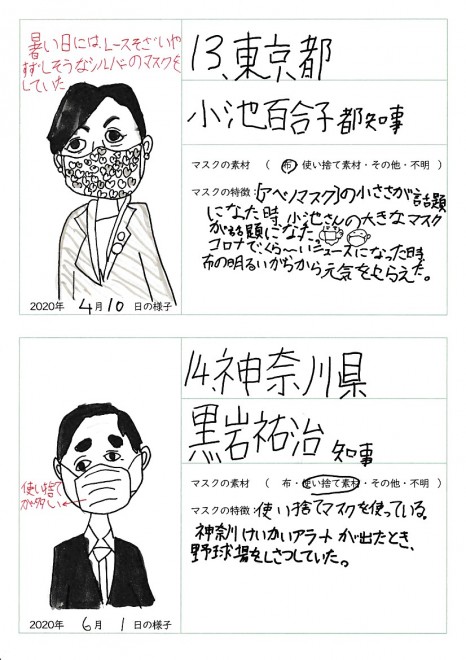 暑い日には、レースそざいや
すずしそうなシルバーのマスクを
していた
13、東京都
小池百合子都知事
マスクの素材 （ 布・使い捨て素材・その他・不明 ）
マスクの特徴：[アベノマスク]の小ささが話題
になった時、小池さんの大きなマスク
が話題になった
コロナでくら～いニュースになった時、
布の明るいがらから元気をもらえた。
2020年 4月10日の様子
14、神奈川県
黒岩祐治 知事
マスクの素材 （ 布・使い捨て素材・その他・不明 ）
使い捨て
が多い←
マスクの特徴：使い捨てマスクを使っている。
神奈川けいかいアラートが出たとき、
野球場をしさつしていた。
2020年 6月 1日の様子